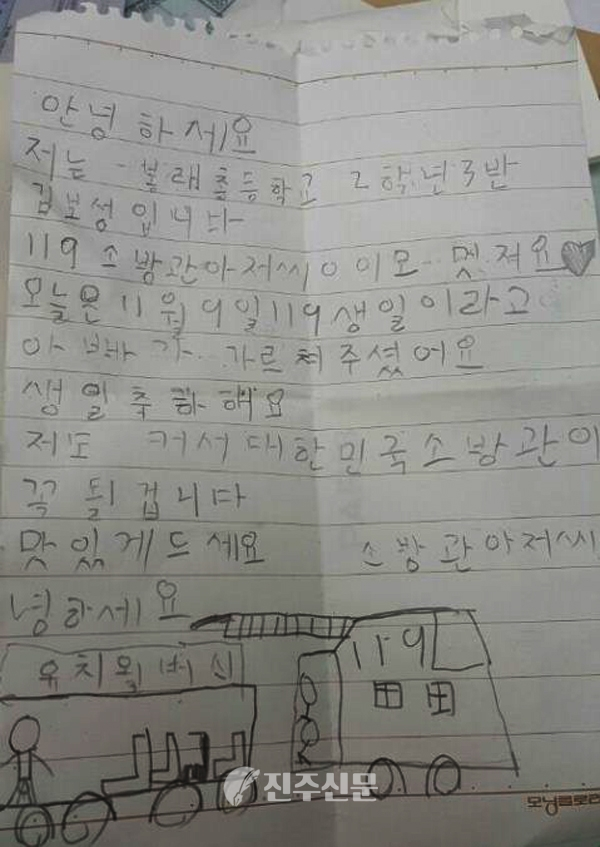 안녕하세요
저는 봉래초등학교 2학년3반
김보성입니다
119 소방관아저씨이모 멋져요
오늘은 11월9일119생일이라고
아빠가 가르쳐주셨어요
생일축하해요
저도 커서대한민국소방관이
꼭 될겁니다
맛있게드세요 소방관아저씨
녕하세요
119
진주신문
모닝글로리